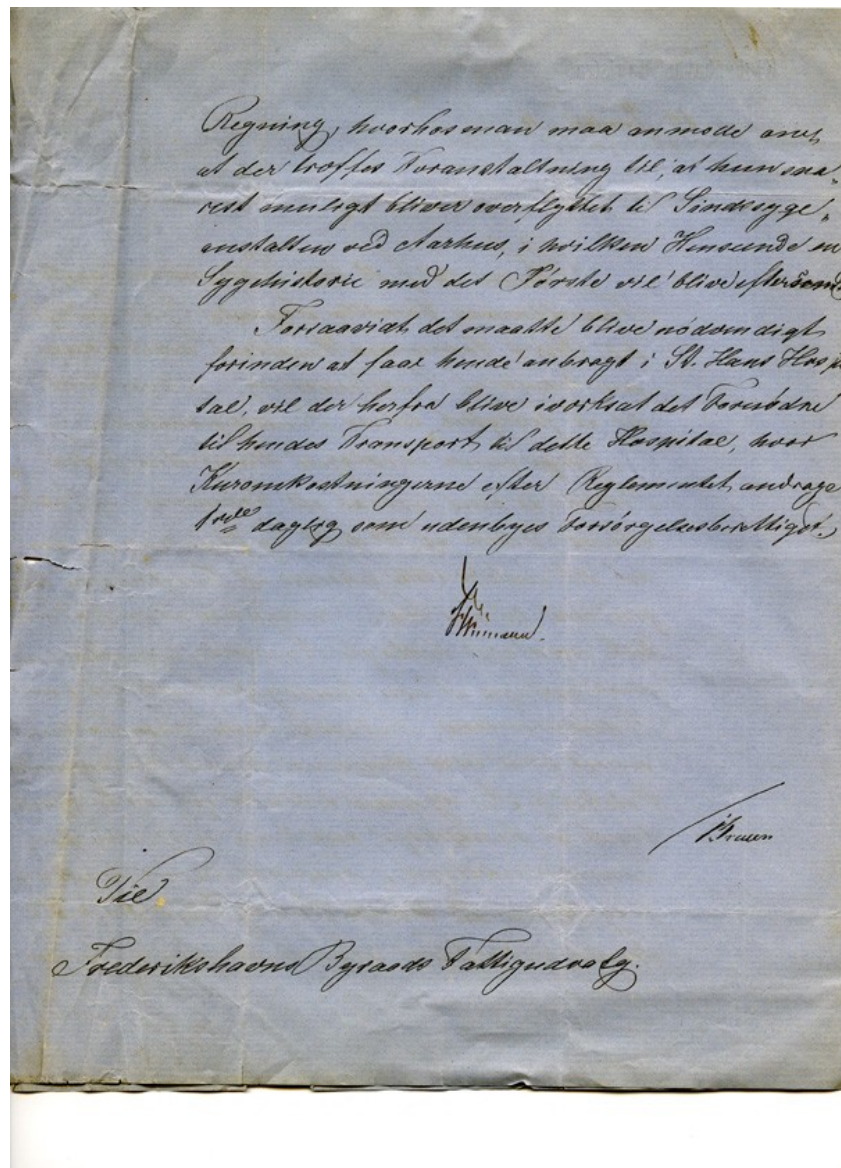 Regning, hvorhos man maa anmode om,
at der træffes Foranstaltning til, at hun sna-
rest muligt bliver overflyttet til Sindssyge-
anstalten ved Aarhus, i hvilken Henseende en
Sygehistorie med det Første vil blive eftersendt
Forsaavidt det maatte blive nødvendigt
forinden at faae hende anbragt i St. Hans Hospi
tal, vil der herfra blive iværksat det Fornødne
til hendes Transport til dette Hospital, hvor
Kuromkostningerne efter Reglementet andrage
1 rdl daglig som udenbyes Forsørgelsesberettiget.
Til
Frederikshavns Byraads Fattigudvalg.